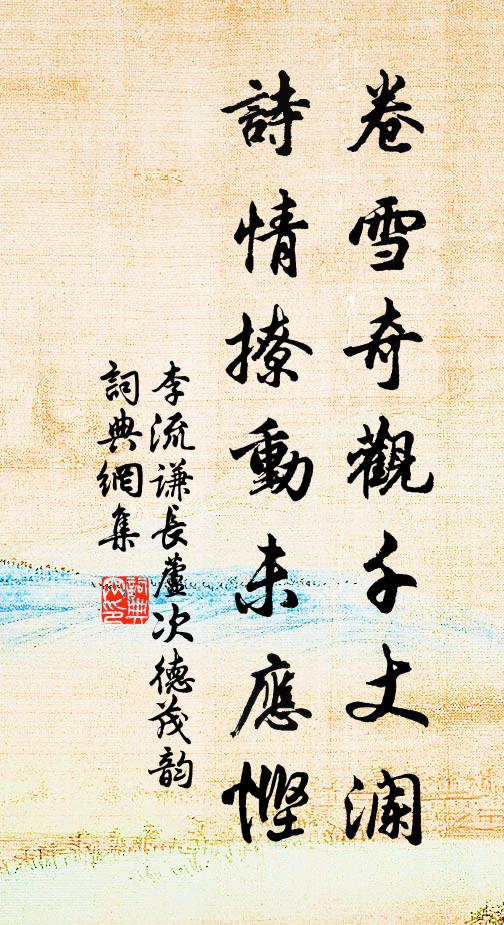 卷雪奇觀千丈澜
詩情撩動未應慳
李流谦長蘆次德茂韵
詞典網集